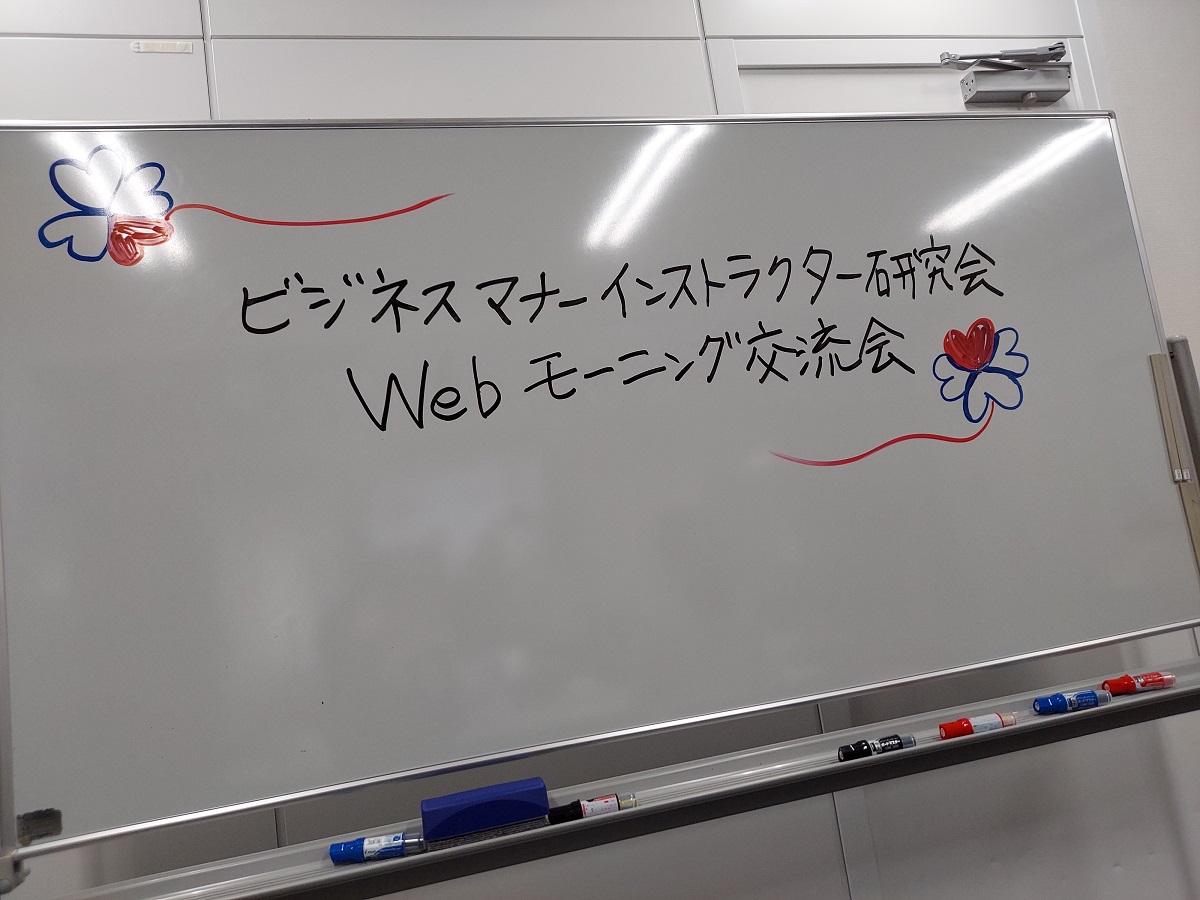 ビジネスマナーインストラクター研究会
Webモーニング交流会